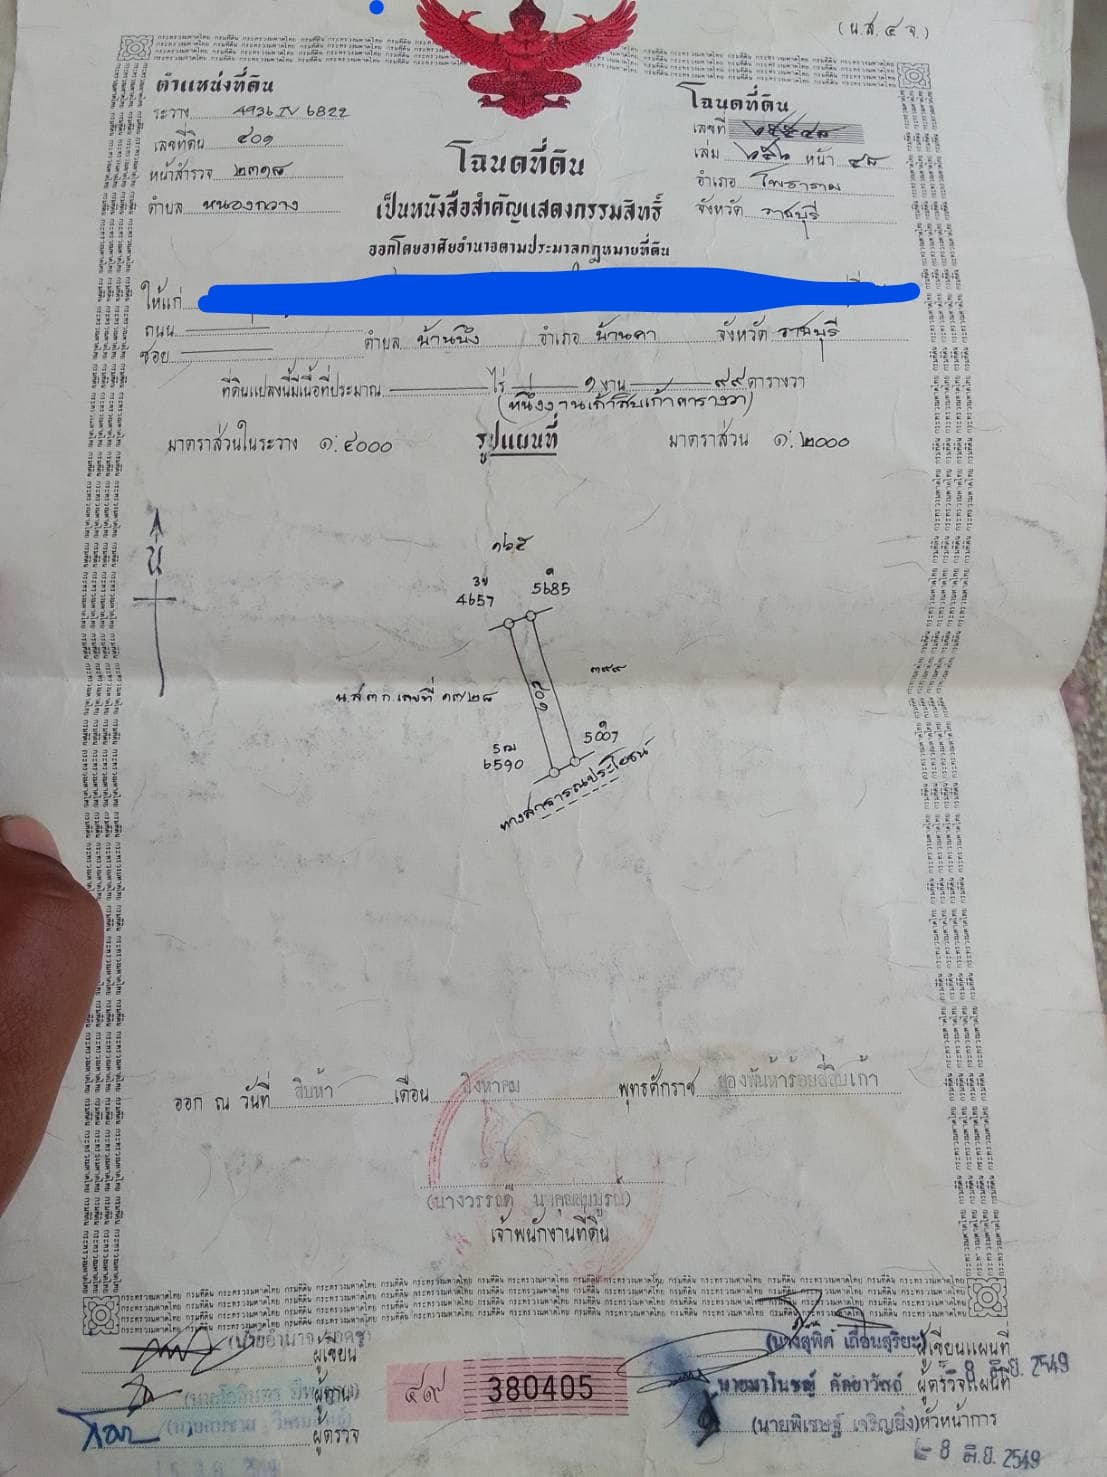 (น.ส. ๔ จ.)
ตำแหน่งที่ดิน
ระวาง 4936 IV 6822
เลขที่ดิน ๔๐๑
หน้าสำรวจ ๒๓๑๘
ตำบล หนองกวาง
โฉนดที่ดิน
เลขที่
เล่ม ๒๕๖ หน้า ๔๘
อำเภอ โพธาราม
จังหวัด ราชบุรี
โฉนดที่ดิน
เป็นหนังสือสำคัญแสดงกรรมสิทธิ์
ออกโดยอาศัยอำนาจตามประมวลกฎหมายที่ดิน
ให้แก่
ถนน
ซอย ตำบล บ้านบึง อำเภอ บ้านคา จังหวัด ราชบุรี
ที่ดินแปลงนี้มีเนื้อที่ประมาณ ไร่ ๑ งาน ๙๙ ตารางวา
(หนึ่งงานเก้าสิบเก้าตารางวา)
มาตราส่วนในระวาง ๑:๔๐๐๐ รูปแผนที่ มาตราส่วน ๑:๒๐๐๐
น
๑๖๕
4657 5685
๓๙๙
๔๐๑
น.ส.๓ ก. เลขที่ ๑๗๒๘
6590
ทางสาธารณประโยชน์
ออก ณ วันที่ สิบห้า เดือน สิงหาคม พุทธศักราช สองพันห้าร้อยสี่สิบเก้า
เจ้าพนักงานที่ดิน
ผู้เขียน
ผู้ทาน
ผู้ตรวจ
๔๙ 380405
(นางสุพิศ เถื่อนสุริยะ) ผู้เขียนแผนที่
ผู้ตรวจแผนที่
8 มิ.ย. 2549
(นายพิเชษฐ์ เจริญยิ่ง) หัวหน้าการ
8 มิ.ย. 2549